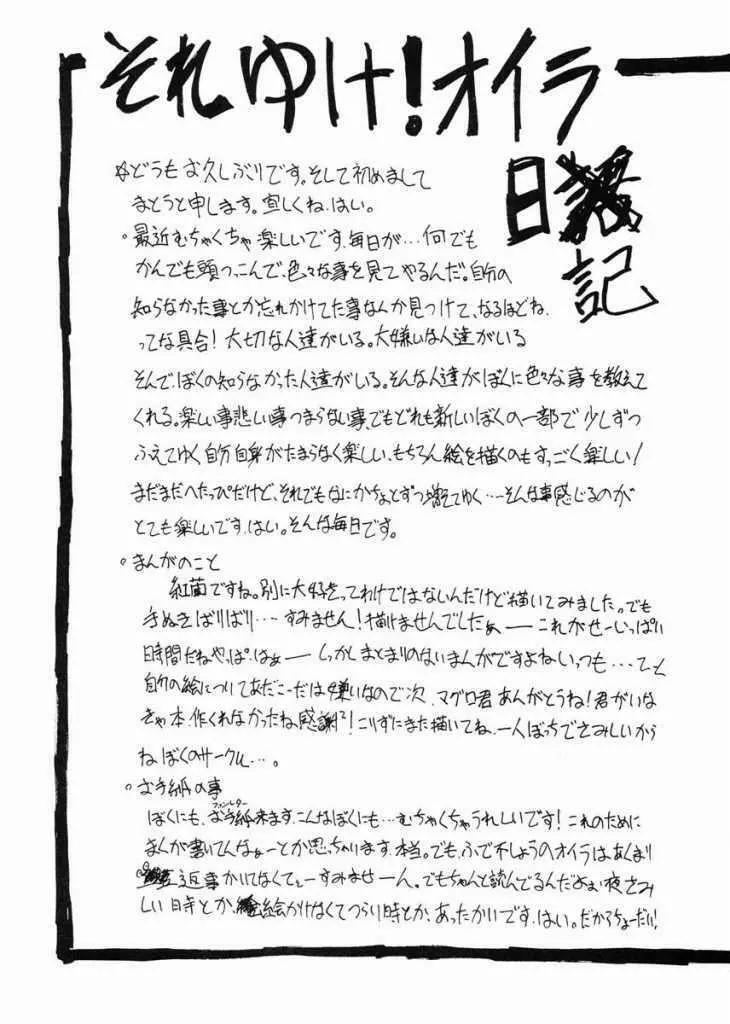 それゆけ！オイラ
日記
☆どうもお久しぶりです。そして初めまして
まとうと申します。宜しくね。はい。
・最近むちゃくちゃ楽しいです、毎日が…何でも
かんでも頭つっこんで、色々な事を見てやるんだ。自分の
知らなかった事とか忘れかけてた事なんか見つけて、なるほどね、
ってな具合！大切な人達がいる。大嫌いな人達がいる
そんで、ぼくの知らなかった人達がいる。そんな人達がぼくに色々な事を教えて
くれる。楽しい事悲しい事つまらない事、でもどれも新しいぼくの一部で少しずつ
ふえてゆく自分自身がたまらなく楽しい、もちろん絵を描くのもすっごく楽しい！
まだまだへたっぴだけど、それでもなにかちょとずつ増えてゆく…そんな事感じるのが
とても楽しいです、はい。そんな毎日です。
・まんがのこと
紅茜ですね。別に大好きってわけではないんだけど描いてみました。でも
手ぬきばりばり…すみません！描けませんでしたぁー これがせーいっぱい
時間だねやっぱ。はぁー しっかしまとまりのないまんがですよねいっつも…てと
自分の絵についてあだこーだは嫌いなので次、マグロ君あんがとうね！君がいな
きゃ本、作くれなかったね感謝！こりずにまた描いてね、一人ぼっちでさみしいから
ねぼくのサークル…。
・お手紙の事
ぼくにも、お手紙(ファンレター)来ます、こんなぼくにも…むちゃくちゃうれしいです！これのために
まんが書いてんなぁーとか思っちゃいます、本当。でも、ふで不しょうのオイラは、あんまり
返事かいてなくてぇーすみませーん。でもちゃんと読んでるんだよぉ、夜さみ
しい時とか、絵がかけなくてつらい時とか、あったかいです、はい。だからちょーだい！